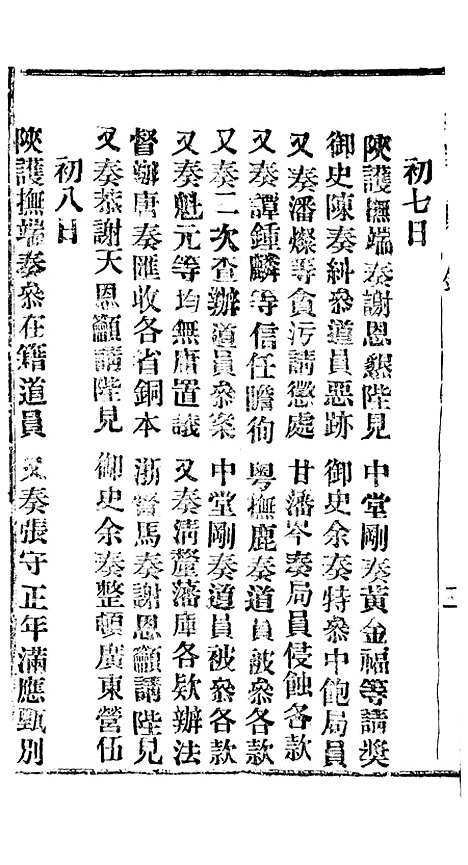 初七日
陝護撫端奏謝恩懇陛見　中堂剛奏黃金福等請獎
御史陳奏糾參道員惡跡　御史余奏特參中飽局員
又奏潘燦等貪污請懲處　甘藩岑奏局員侵蝕各款
又奏譚鍾麟等信任瞻徇　粵撫鹿奏道員被參各款
又奏二次查辦道員參案　中堂剛奏道員被參各款
又奏魁元等均無庸置議　又奏清釐藩庫各欵辦法
督辦唐奏匯收各省銅本　浙督馬奏謝恩籲請陛見
又奏恭謝天恩籲請陛見　御史余奏整頓廣東營伍
初八日
陝護撫端奏參在籍道員　又奏張守正年滿應甄別